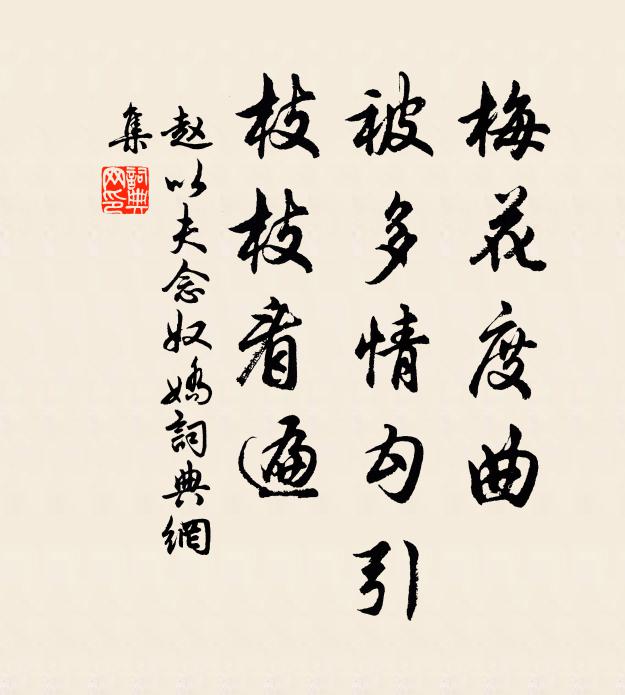 梅花度曲
被多情勾引
枝枝看遍
赵以夫念奴娇詞典網
集
詞典网印